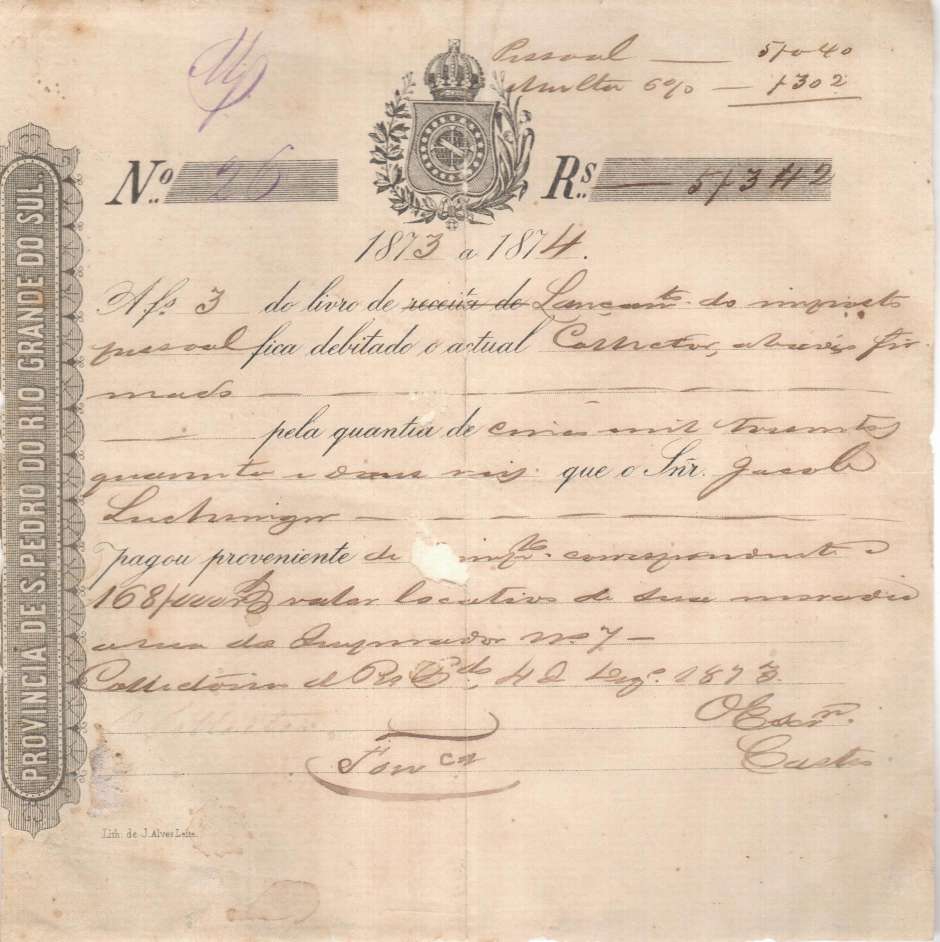 Pessoal — 5/040
Multa 6% — /302
Nº 26 Rs — 5/342
1873 a 1874.
A fs 3 do livro de receita do Lançamto. do imposto
pessoal fica debitado o actual Collector, abaixo fir-
mado
pela quantia de cinco mil tresentos
quarenta e dous reis que o Snr. Jacob
Luchsinger
pagou proveniente de impto. correspondente a
168/ valor locativo de sua moradia
a rua do Imperador Nº 7 –
Collectoria de 4 de Dezº. 1873
O Escrm.
Fonca Castro
Lith. de J. Alves Leite.
PROVINCIA DE S. PEDRO DO RIO GRANDE DO SUL.